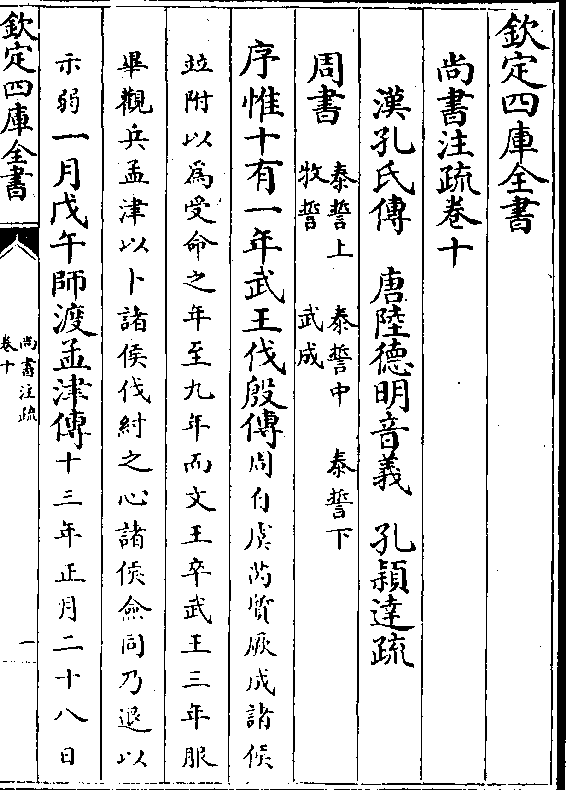 欽定四庫全書
尚書注疏卷十
漢孔氏傳　唐陸德明音義　孔穎達疏
周書
泰誓上　泰誓中　泰誓下
牧誓　武成
序惟十有一年武王伐殷傳周自虞芮質厥成諸侯
竝附以為受命之年至九年而文王卒武王三年服
畢觀兵孟津以卜諸侯伐紂之心諸侯僉同乃退以
示弱一月戊午師渡孟津傳十三年正月二十八日
欽定四庫全書
尚書注疏
卷十
一